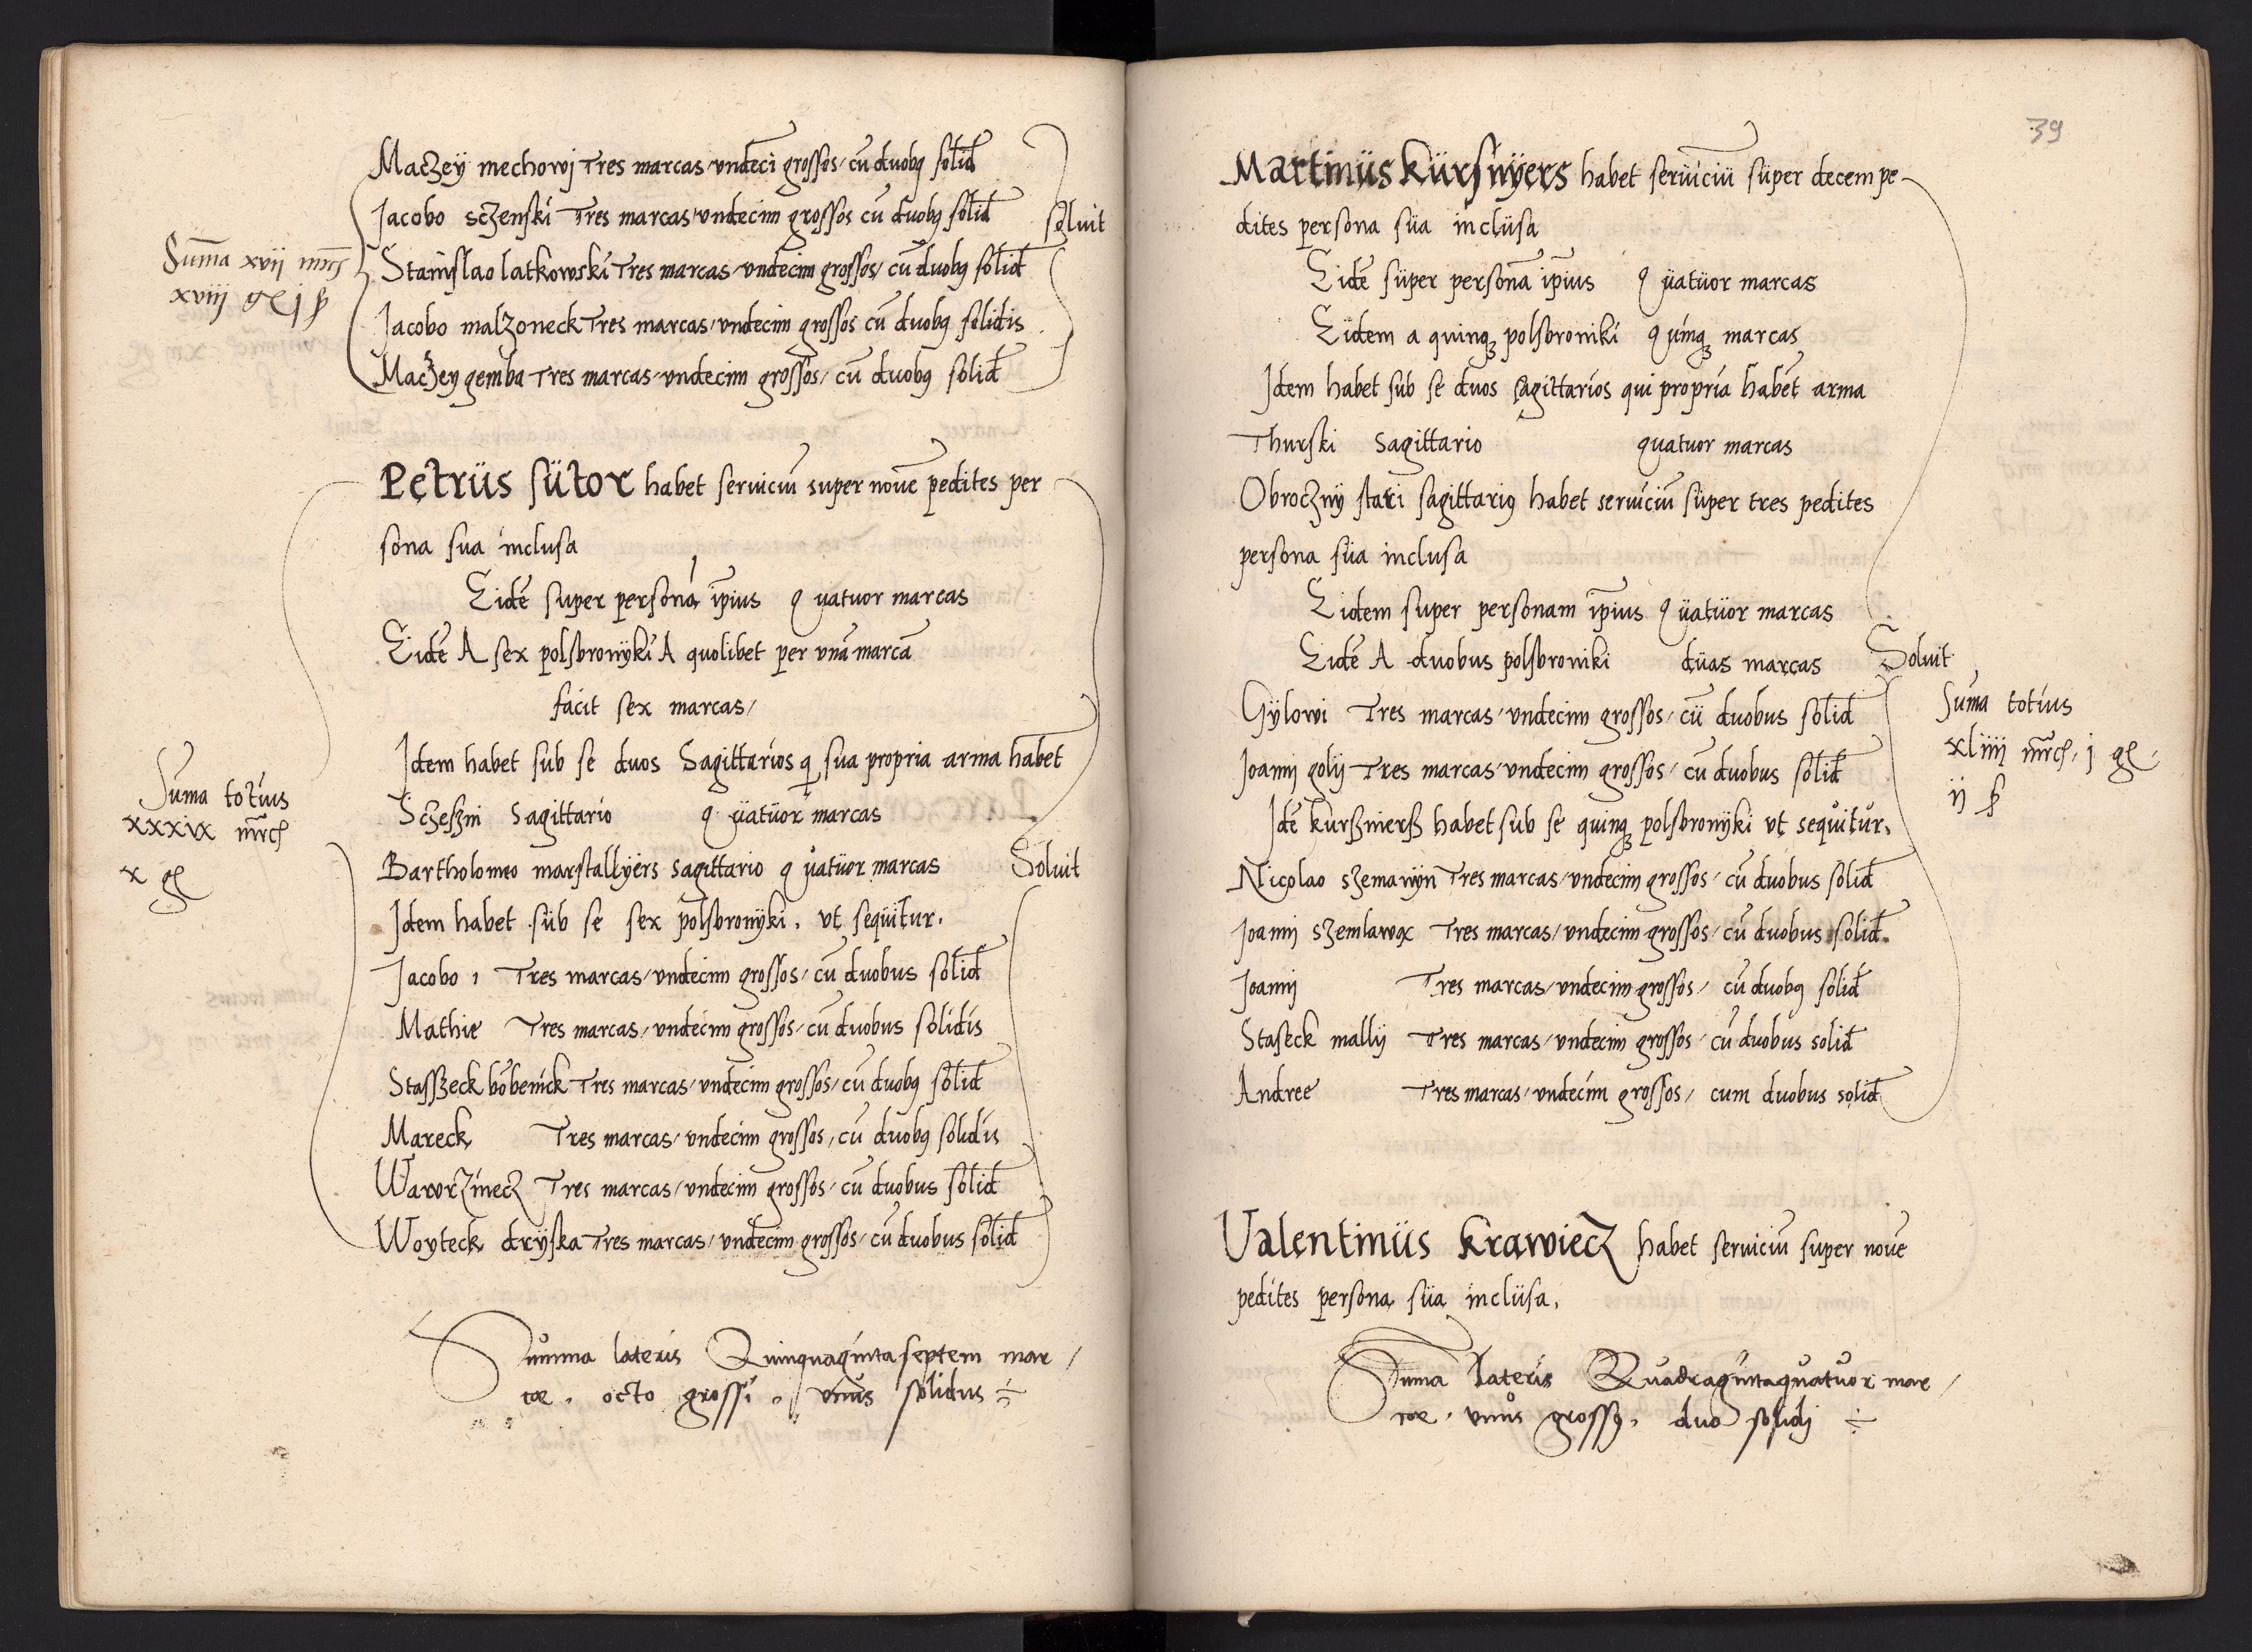 Maczeÿ mechowj Tres marcas undeci grossos cū duobꝯ solid
Jacobo sczenski Tres marcas undecim grossos cū duobꝯ solid
soluit
Sum̄a xvij mrc
xviij gr j ß
Stanislao latkowski Tres marcas undecim grossos cū duobꝯ solid
Jacobo malzoneck Tres marcas undecim grossos cū duobꝯ solidis
Maczey gemba Tres marcas undecim grossos cū duobꝯ solid
Petrüs sütor habet seruiciū super nouē pedites per
sona sua inclusa
Eidē super personā ip̄ius quatuor marcas
Eidē A sex polsbronÿki A quolibet per unā marcā
facit sex marcas
Idem habet sub se duos Sagittarios q̄ sua propria arma habēt
Sczeszni Sagittario quatüor marcas
Suma totius
xxxix mrc
x gr
Bartholomeo marstallÿers sagittario quatuor marcas
Soluit
Idem habet sub se sex polsbronÿki. ut seqüitur.
Jacobo Tres marcas undecim grossos cū duobus solid
Mathie Tres marcas undecim grossos cū duobus solidis
Stasszeck bobenick Tres marcas undecim grossos cū duobꝯ solid
Mareck Tres marcas undecim grossos, cū duobꝯ solidis
Wawrzinecz Tres marcas undecim grossos cū duobus solid
Woyteck drÿska Tres marcas undecim grossos cū duobus solid
Summa lateris Quinquaginta septem mar
cae. octo grossi. unus solidus
39
Martinüs Kürsnÿers habet seruiciū süper decem pe-
dites persona süa inclüsa
Eidē süper personā ip̄ius quatüor marcas
Eidem a quinqꝫ polsbroniki quinqꝫ marcas
Idem habet sub se duos sagittarios qui propria habēt arma
Thurski Sagittario quatuor marcas
Obroczny stari sagittariꝯ habet seruiciū süper tres pedites
persona süa inclusa
Eidem super personam ip̄ius quatüor marcas
Eidē A duobus polsbroniki düas marcas
Soluit
Gÿlowi Tres marcas undecim grossos cū duobus solid
Suma totius
xliiij mrc, j gr
ij ß
Joanni golij Tres marcas undecim grossos cū duobus solid
Idē kurßnierß habet sub se quinqꝫ polsbronÿki ut sequitur.
Nicolao szemanyn Tres marcas undecim grossos cū duobus solid
Joanni szemlawox Tres marcas undecim grossos cū duobus solid.
Joanni Tres marcas undecim grossos cū duobꝯ solid
Staseck mallij Tres marcas undecim grossos cū duobus solid
Andree Tres marcas undecim grossos cum duobus solid
Valentinüs Krawiecz habet seruiciū super nouē
pedites persona süa inclüsa.
Suma lateris Quadragintaquatuor mar
cae. unus grossꝯ. duo solidj